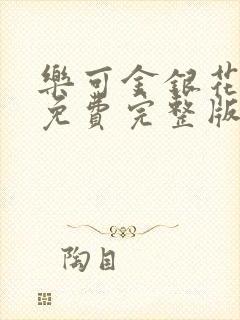 樂可金銀花
免費完整版
陶目